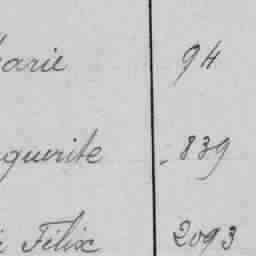 arie 94
guerite 839
Félix 2093